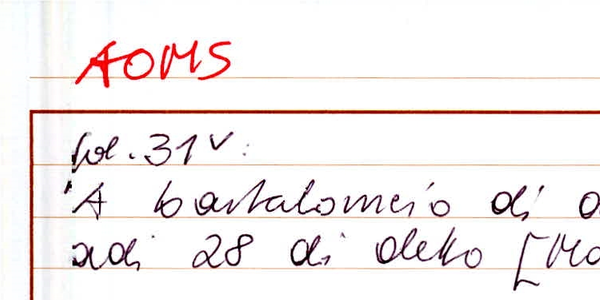 AOMS
fol. 31v:
'A bartalomeio di
adi 28 di detto [Ma